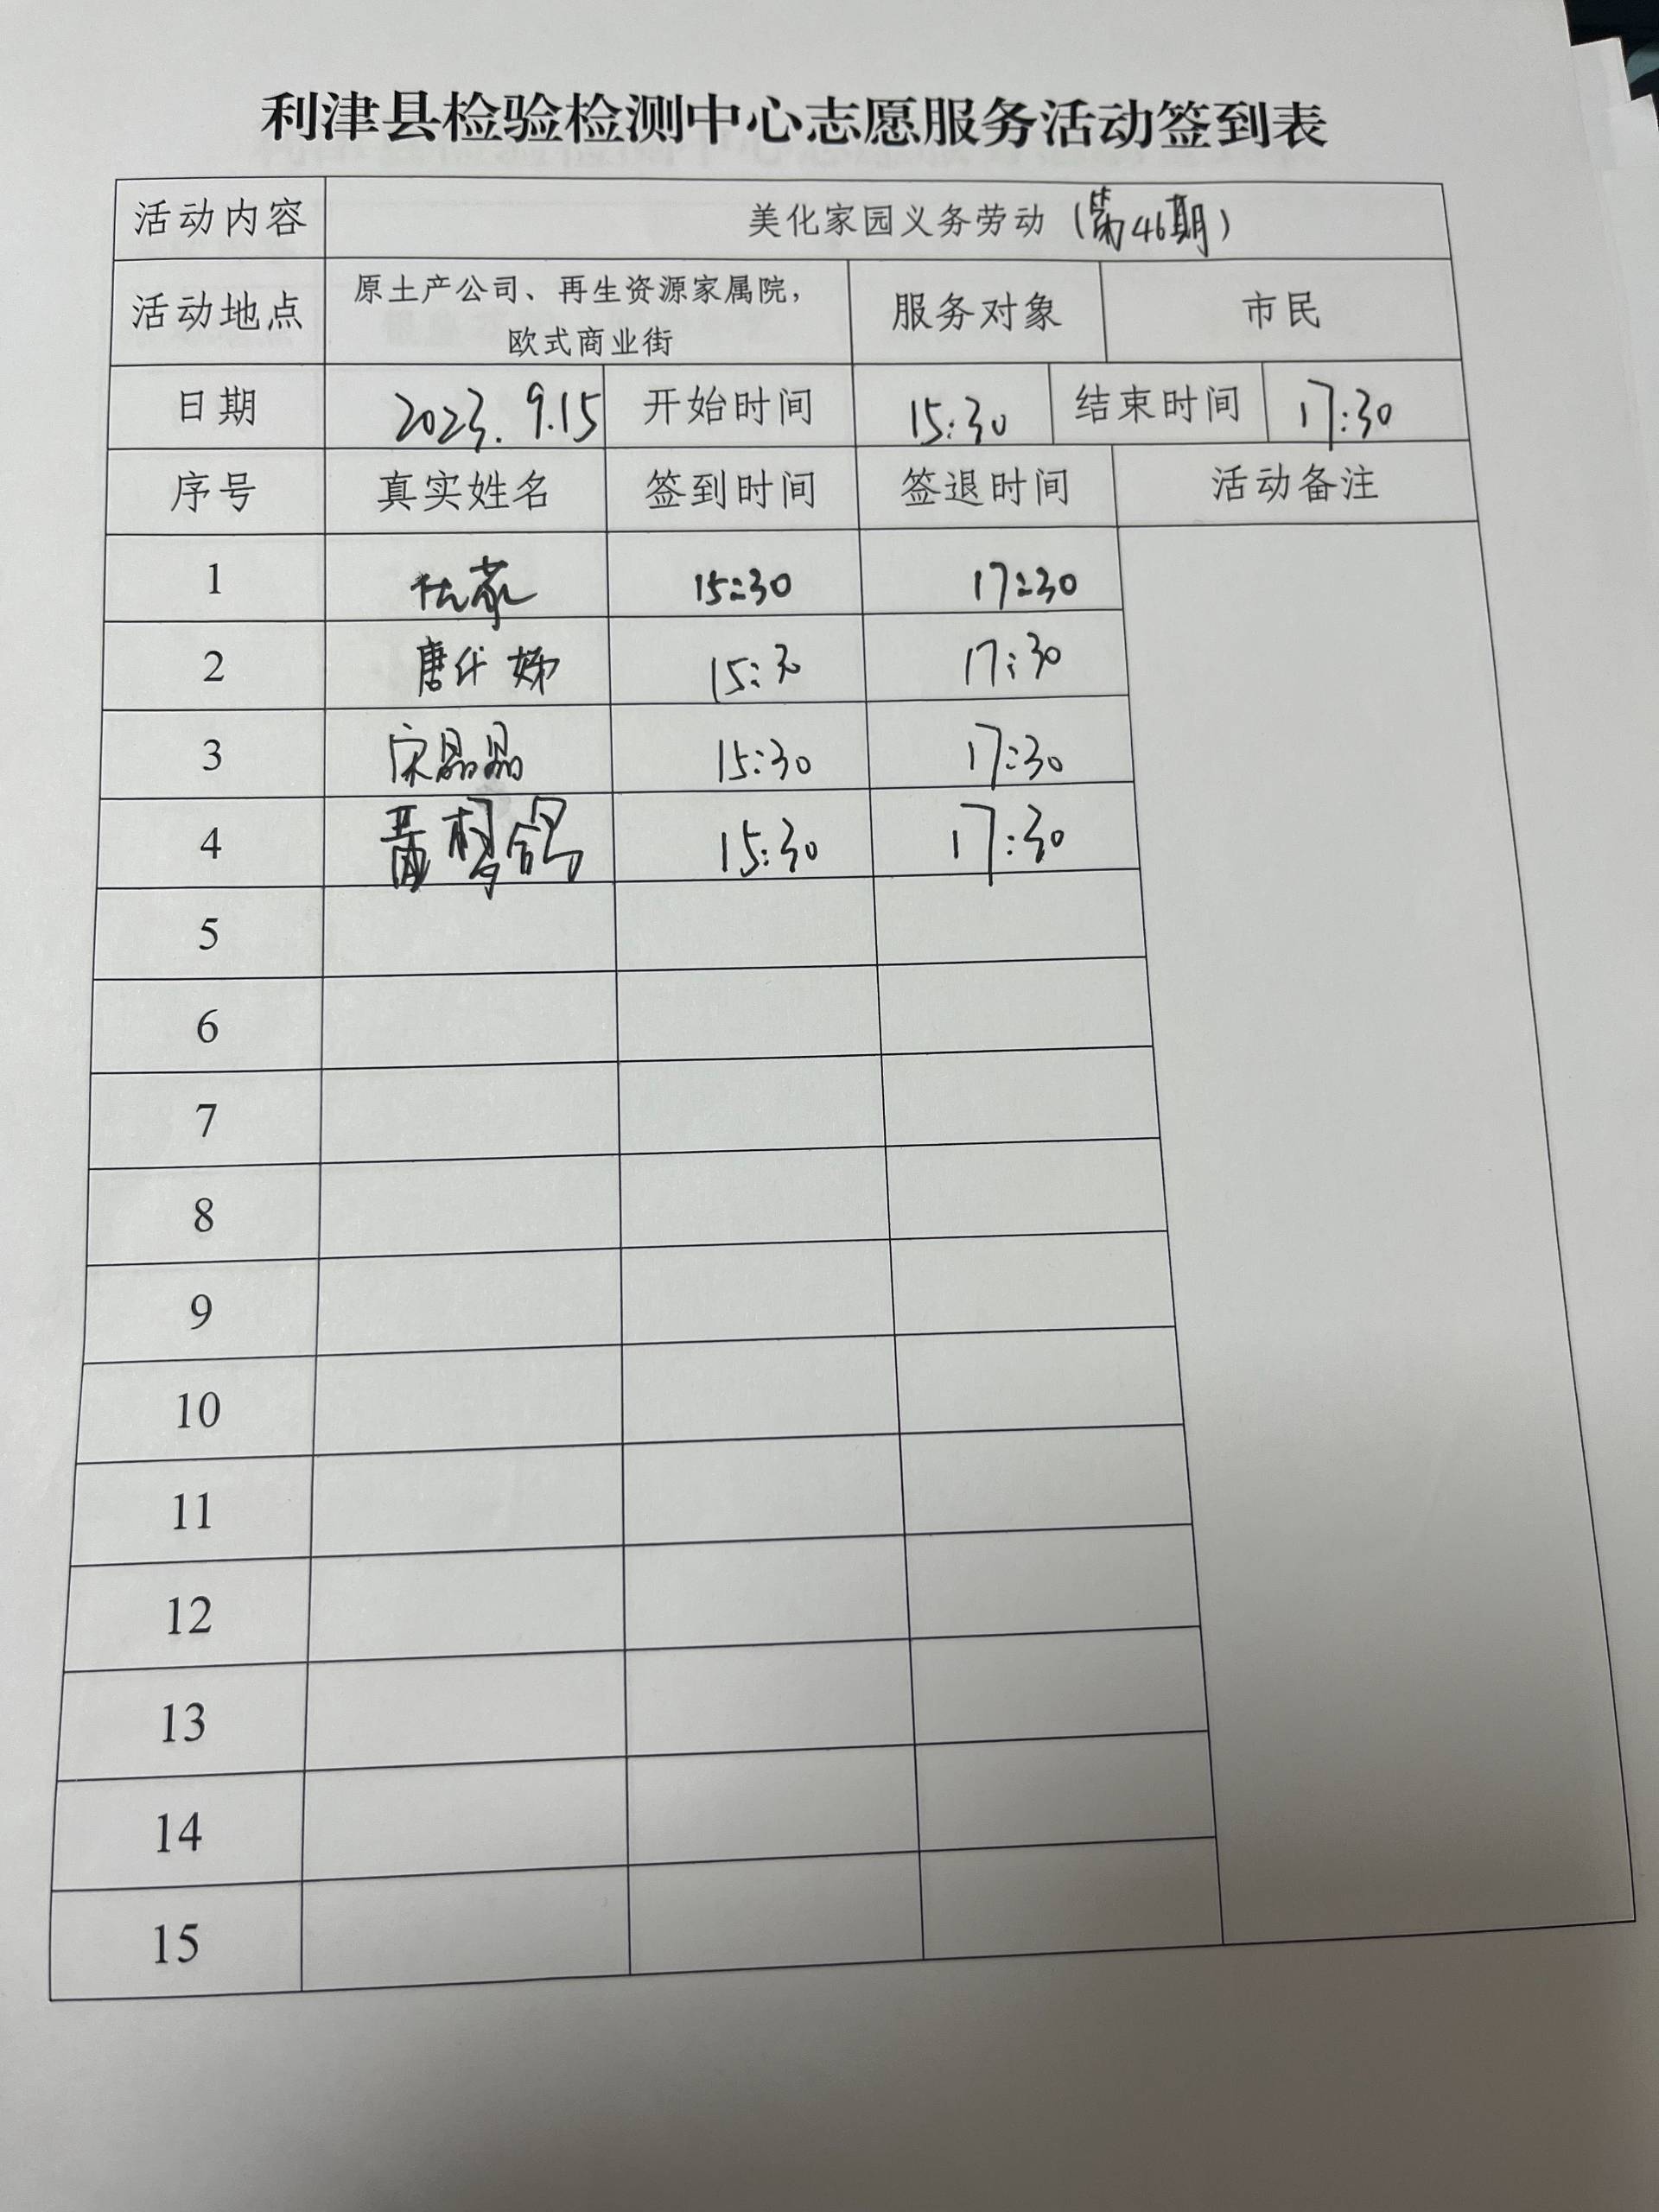 利津县检验检测中心志愿服务活动签到表
活动内容 美化家园义务劳动（第46期）
活动地点 原土产公司、再生资源家属院， 服务对象 市民
欧式商业街
日期 2023.9.15 开始时间 15:30 结束时间 17:30
序号 真实姓名 签到时间 签退时间 活动备注
1 15:30 17:30
2 唐 15:30 17:30
3 宋晶晶 15:30 17:30
4 15:30 17:30
5
6
7
8
9
10
11
12
13
14
15